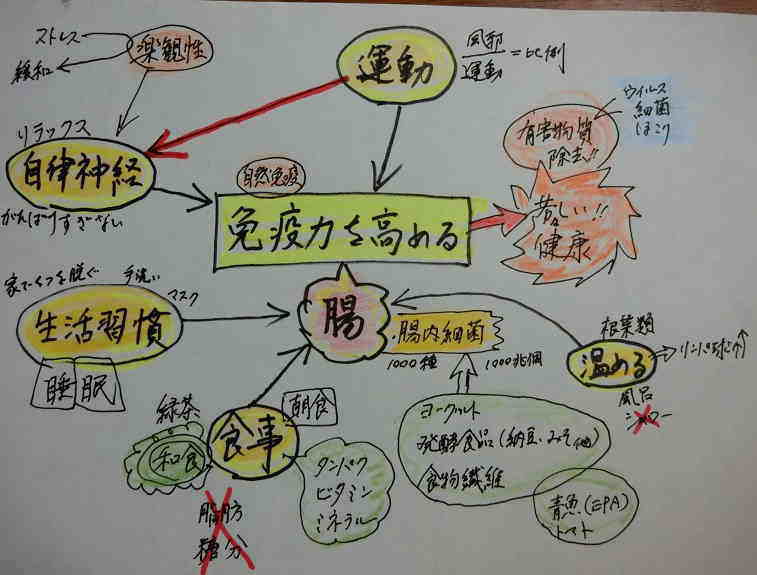 ストレス
緩和
楽観性
運動
風邪
運動
=比例
ウイルス
細菌
ほこり
有害物質
除去!!
リラックス
自律神経
がんばりすぎない
自然免疫
免疫力を高める
若々しい!!
健康
家でくつを脱ぐ
手洗い
マスク
生活習慣
睡眠
腸
腸内細菌
1000種
1000兆個
根菜類
温める
リンパ球↑↑
風呂
シャワー
緑茶
和食
食事
朝食
タンパク
ビタミン
ミネラル
脂肪
糖分
ヨーグルト
発酵食品(納豆、みそ他)
食物繊維
青魚(EPA)
トマト